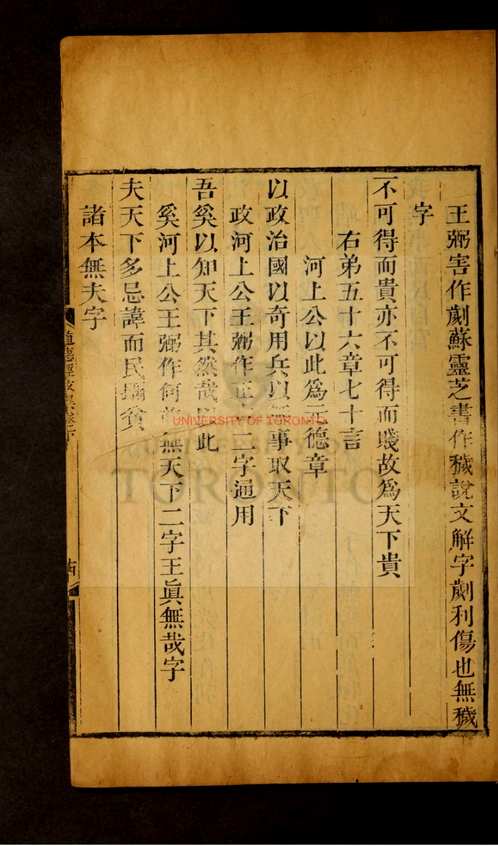 王弼害作劌蘇靈芝書作穢說文解字劌利傷也無穢
字
不可得而貴亦不可得而賤故爲天下貴
右弟五十六章七十言
河上公以此爲玄德章
以政治國以奇用兵以無事取天下
政河上公王弼作正二字通用
吾奚以知天下其然哉以此
奚河上公王弼作何竝無天下二字王眞無哉字
夫天下多忌諱而民彌貧
諸本無夫字
道德經攷異卷下
UNIVERSITY OF TORONTO
TORONTO